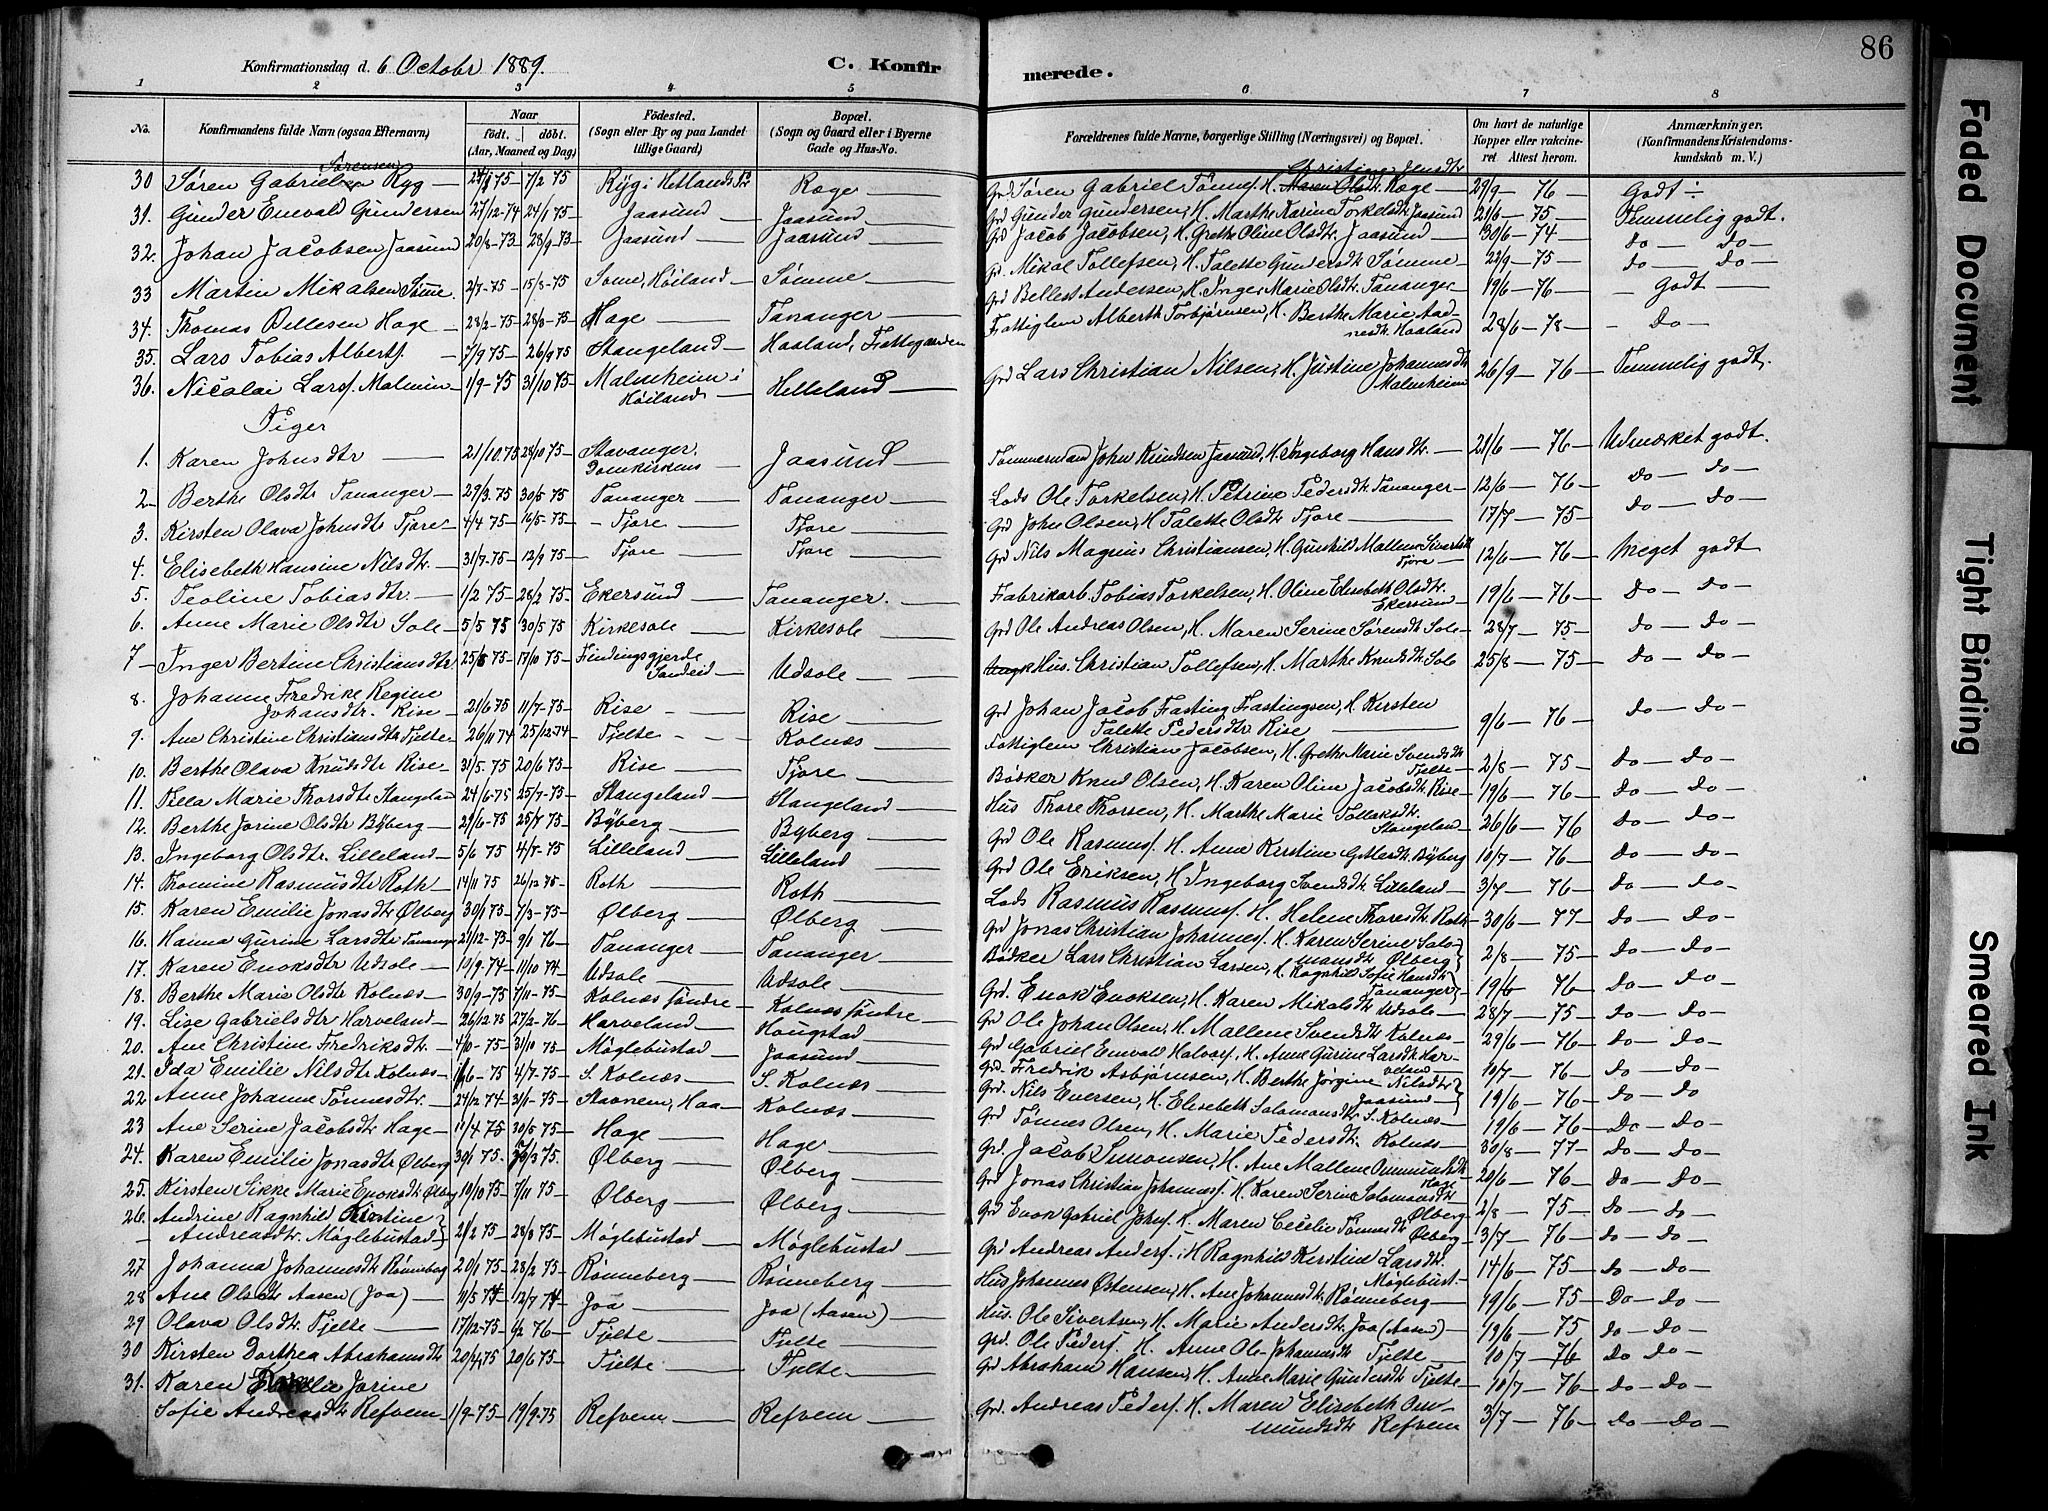 86
Konfirmationsdag d. 6 Octobr 1889.
C. Konfirmerede.
1 2 3 4 5 6 7 8
No.
Konfirmandens fulde Navn (ogsaa Efternavn)
Naar
født. døbt.
(Aar, Maaned og Dag)
Fødested.
(Sogn eller By og paa Landet tillige Gaard)
Bopæl.
(Sogn og Gaard eller i Byerne Gade og Hus-No.
Forældrenes fulde Navne, borgerlige Stilling (Næringsvei) og Bopæl.
Om havt de naturlige Kopper eller vakcineret. Attest herom.
Anmærkninger.
(Konfirmandens Kristendomskundskab m. V.)
30 Søren Gabriel Sørensen Ryg 7/2 75 Ryg i Hetland Ræge Grd Søren Gabriel Tønnesf. H. Christine Jensdtr Ræge 29/9 76 Godt
31. Gunder Emvald Gundersen 27/12-74 24/1 75 Jaasund Jaasund Grd Gunder Gundersen, H. Marthe Karine Torkelsdtr Jaasund 21/6 75 Temmelig godt.
32. Johan Jacobsen Jaasund 20/8-73 28/9 73 Jaasund Jaasund Grd Jacob Jacobsen, H. Grethe Oline Olsdtr Jaasund 30/6 74 Do Do
33 Martin Mikalsen Sømme 2/7-75 15/8-75 Sømme, Høiland Sømme Grd Mikal Tollefsen, H. Talette Gundersdtr Sømme 22/9 75 Do Do
34. Thomas Bellesen Hage 28/2-75 28/3-75 Hage Tananger Grd Bellest Andersen, H. Inger Marie Olsdtr Tananger 19/6 76 Godt
35. Lars Tobias Albertsf. 7/9 75 26/9 75 Stangeland Haaland, Fattiggaarden Fattiglem Alberth Torbjørnsen, H. Berthe Marie Aadnesdtr Haaland 28/6 78 Do
36. Nicolai Larsf. Malmin 1/9-75 31/10 75 Malmheim i Høiland Helleland Grd Lars Christian Nilsen, H. Justine Johannesdtr Malmheim 26/9 76 Temmelig godt.
Piger
1. Karen Johnsdtr 21/10.75 28/10 75 Stavanger Domkirkens Jaasund Tømmermand John Knudsen Jaasund, H. Ingeborg Hansdtr 21/6 76 Udmærket godt.
2 Berthe Olsdtr Tananger 29/3 75 30/5 75 Tananger Tananger Lods Ole Torkelsen, H. Petrine Pedersdtr Tananger 12/6 76 Do Do
3. Kirsten Olava Johnsdtr Tjore 4/4 75 16/5-75 Tjore Tjore Grd John Olsen, H. Talette Olsdtr Tjore 17/7 75 Do Do
4. Elisebeth Hansine Nilsdtr. 31/7-75 12/9 75 Tjore Tjore Grd Nils Magnus Christiansen, H. Gunhild Mallene Sivertsdtr Tjore 12/6 76 Meget godt
5. Teoline Tobiasdtr. 1/2 75 28/2 75 Ekersund Tananger. Fabrikarb. Tobias Torkelsen, H. Oline Elisebeth Olsdtr. Ekersund 19/6 76 Do Do
6. Anne Marie Olsdtr Sole 5/5 75 30/5 75 Kirkesole Kirkesole Grd Ole Andreas Olsen, H. Maren Serine Sørensdtr Sole 28/7 75 Do Do
7 Inger Bertine Christiansdtr 25/8 75 17/10 75 Sandeid Udsole Hus. Christian Tollefsen, H. Marthe Knudsdtr Sole 25/8 75 Do Do
8. Johanne Fredrike Regine Johansdtr. Rise 21/6 75 11/7-75 Rise Rise Grd Johan Jacob Fasting Fastingsen, H. Kirsten Talette Pedersdtr Rise 9/6 76 Do Do
9. Ane Christine Christiansdtr Tjelte 26/11 74 25/12-74 Tjelte Kolnæs Fattiglem Christian Jacobsen, H. Grethe Marie Svendsdtr Tjelte 2/8 75 Do Do
10. Berthe Olava Knudsdtr Rise 31/5. 75 20/6 75 Rise Tjore Bødker Knud Olsen, H. Karen Oline Jacobsdtr Rise 19/6 76 Do Do
11. Tilla Marie Thorsdtr Stangeland 24/6-75 25/7-75 Stangeland Stangeland Hus Thore Thorsen, H. Marthe Marie Tollaksdtr. Stangeland 26/6 76 Do Do
12. Berthe Jorine Olsdtr Byberg 29/6-75 25/7 75 Byberg Byberg Grd Ole Rasmusf. H. Anne Kirstine Gitlesdtr. Byberg 10/7 76 Do Do
13. Ingeborg Olsdtr. Lilleland 5/6 75 4/7-75 Lilleland Lilleland Grd Ole Eriksen, H. Ingeborg Svendsdtr Lilleland 3/7 76 Do Do
14. Thomine Rasmusdtr Roth 14/11 75 26/12 75 Roth Roth Lods Rasmus Rasmusf. H. Helene Thoresdtr Roth 30/6 77 Do Do
15. Karen Emilie Jonasdtr Ølberg 30/1 75 7/3-75 Ølberg Ølberg Grd Jonas Christian Johannesf. H. Karen Serine Salomansdtr Ølberg 2/8 75 Do Do
16. Hanna Gurine Larsdtr Tananger 21/12-75 9/1 76 Tananger Tananger Bødker Lars Christian Larsen, H. Ragnhild Sofie Hansdtr Tananger 19/6 76 Do Do
17. Karen Enoksdtr Udsole 10/9-74 11/10 74 Udsole Udsole Grd. Enok Enoksen, H. Karen Mikalsdtr Udsole 28/7 75 Do Do
18. Berthe Marie Olsdtr Kolnæs 30/9-75 7/11-75 Kolnæs søndre Kolnæs søndre Grd Ole Johan Olsen, H. Mallene Svendsdtr Kolnæs 29/6 76 Do Do
19. Lise Gabrielsdtr Harveland 26/12 75 27/2-76 Harveland Hougstad Grd. Gabriel Emvald Halvorf. H. Anne Gurine Larsdtr Harveland 10/7 76 Do Do
20. Ane Christine Fredriksdtr. 31/10 75 Møglebustad Jaasund Grd. Fredrik Asbjørnsen, H. Berthe Jørgine Nilsdtr Jaasund 19/6 76 Do Do
21. Ida Emilie Nilsdtr Kolnæs 4/7-75 S. Kolnæs S. Kolnæs Grd. Nils Eversen, H. Elisebeth Salamonsdtr S. Kolnæs 19/6 76 Do Do
22 Anne Johanne Tønnesdtr. 24/12 74 31/1-75 Stavnem, Haa Kolnæs Grd Tønnes Olsen, H. Marie Pedersdtr. Kolnæs
23 Ane Serine Jacobsdtr Hage 11/4 75 30/5 75 Hage Hage Grd. Jacob Simonsen, H. Ane Mallene Ommundsdtr Hage 30/8 77 Do Do
24. Karen Emilie Jonasdtr Ølberg 30/1 75. Ølberg Ølberg Grd Jonas Christian Johannesf. H. Karen Serine Salomansdtr Ølberg 2/8 75 Do Do
25. Kirsten Sikke Marie Enoksdtr Ølberg 10/10 75 7/11 75 Ølberg Ølberg Grd Enok Gabriel Johnsf. H. Maren Cecilie Tønnesdtr Ølberg 3/7 76 Do Do
26. Andrine Ragnhild Kirstine Andreasdtr. Møglebustad 21/2 75 28/3 75 Møglebustad Møglebustad Grd Andreas Andersf. H Ragnhild Kirstine Larsdtr. Møglebust. 14/6 75 Do Do
27 Johanna Johannesdtr Rønneberg 20/1 75 28/2 75 Rønneberg Rønneberg Hus Johannes Østensen, H. Ane Johannesdtr Rønneberg 19/6 75 Do Do
28 Ane Olsdtr Aasen (Joa) 11/5 74 12/7 74 Joa Joa (Aasen) Hus. Ole Sivertsen, H. Marie Andersdtr, Joa (Aasen) 19/6 75 Do Do
29 Olava Olsdtr. Tjelte 17/12-75 6/2 76 Tjelte Tjelte Grd. Ole Pedersf. H. Anne Ole Johannesdtr Tjelte 10/7 76 Do Do
30 Kirsten Dorthea Abrahamsdtr 20/4 75 20/6 75 Tjelte Tjelte Grd Abraham Hansen, H. Anne Marie Gundersdtr Tjelte 10/7 76 Do Do
31. Karen Jorine Sofie Andreasdtr Refvem 1/9-75 19/9-75 Refvem Refvem Grd. Andreas Pedersf. H. Maren Elisebeth Ommundsdtr Refvem 3/7 76 Do Do
Faded Document
Tight Binding
Smeared Ink